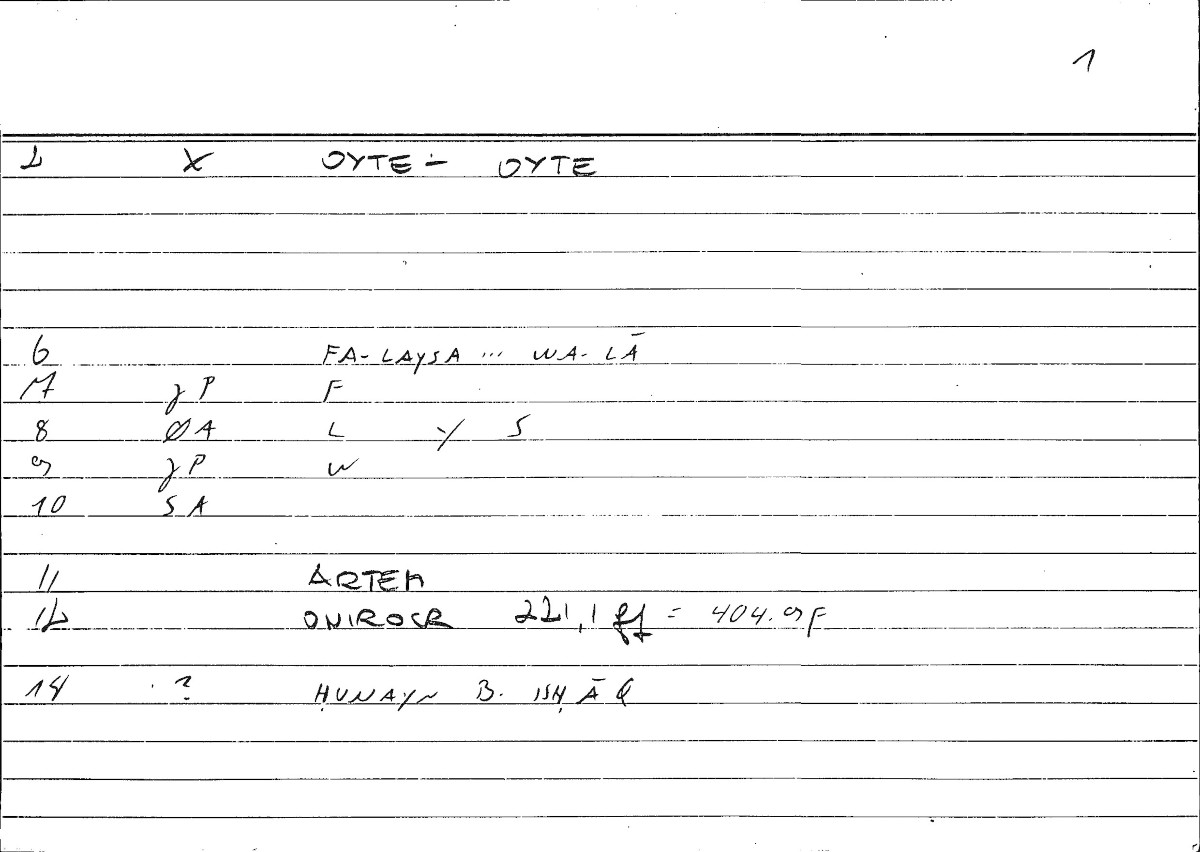 1
2 X OYTE – OYTE
6 FA-LAYSA ... WA-LĀ
7 P F
8 ØA L Y S
9 P W
10 SA
11 ARTEM
12 ONIROCR 221,1 ff = 404.9 F
14 ? ḤUNAYN B. ISḤĀQ